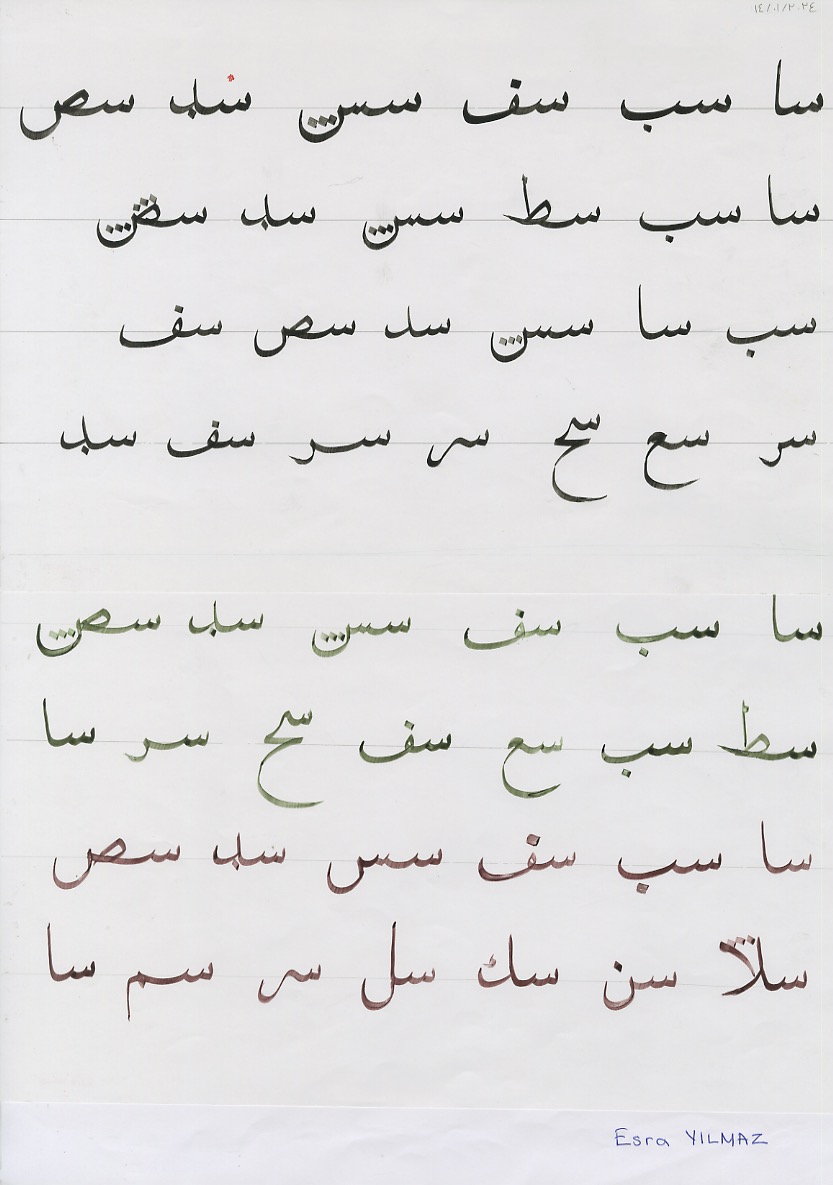 ١٤/٠١/٢٠٢٤
سا سب سف سس سد سص
سا سب سط سس سد سص
سب سا سس سد سص سف
سر سع سح سر سر سف سد
سا سب سف سس سد سص
سط سب سع سف سح سر سا
سا سب سف سس سد سص
سلا سن سك سل سر سم سا
Esra YILMAZ